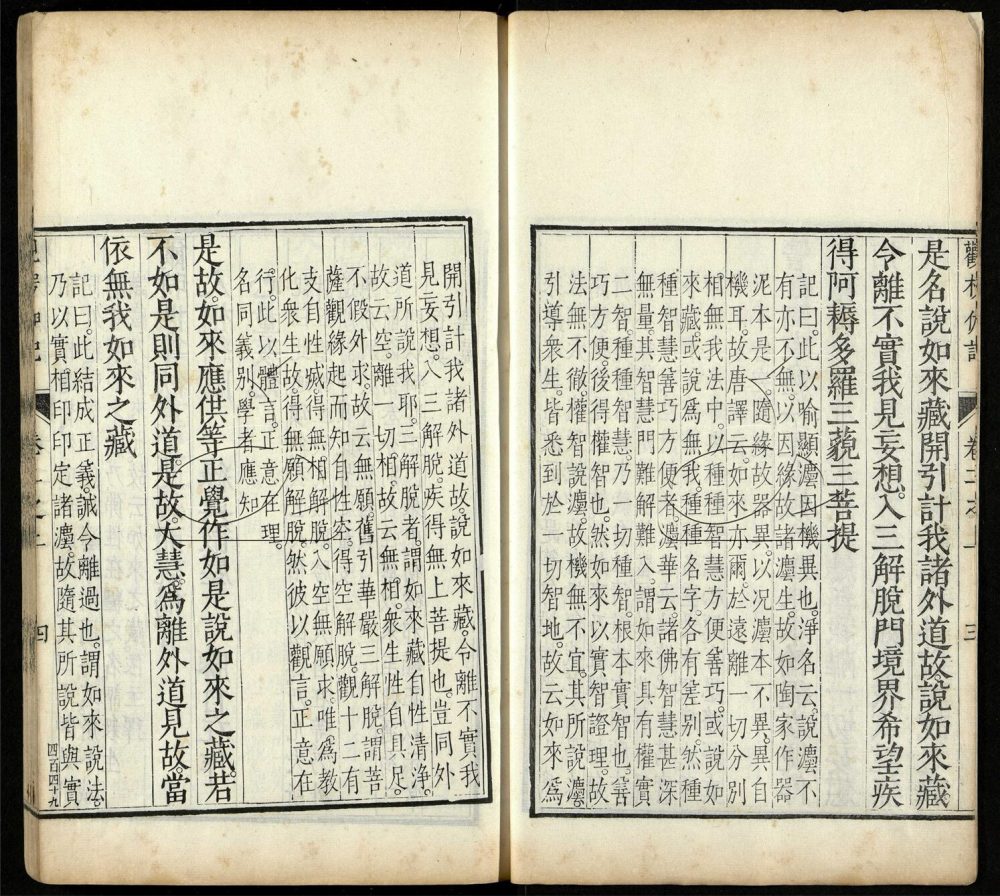 是名說如來藏開引計我諸外道故說如來藏。
令離不實我見妄想。入三解脫門境界希望疾
得阿耨多羅三藐三菩提
記曰。此以喻顯灋因機異也。淨名云。說灋不
有亦不無。以因緣故諸灋生。故如陶家作器
泥本是一。隨緣故器異。以况灋本不異。異自
機耳。故唐譯云如來亦爾。於遠離一切分別
相無我法中。以種種智慧方便善巧。或說如
來藏。或說爲無我。種種名字。各有差別。然種
種智慧善巧方便者。灋華云。諸佛智慧甚深
無量。其智慧門難解難入。謂如來具有權實
二智。種種智慧。乃一切種智根本實智也。善
巧方便。後得權智也。然如來以實智證理。故
法無不徹。權智說灋。故機無不宜。其所說灋。
引導衆生。皆悉到於一切智地。故云如來爲
開引計我諸外道故。說如來藏。令離不實我
見妄想。入三解脫。疾得無上菩提也。豈同外
道所說我耶。三解脫者。謂如來藏自性清淨。
故云空。離一切相。故云無相。衆生性自具足。
不假外求。故云無願。舊引華嚴三解脫。謂菩
薩觀緣起而知自性空。得空解脫。觀十二有
支自性滅。得無相解脫。入空無願求。唯爲教
化衆生。故得無願解脫。然彼以觀言。正意在
行。此以體言。正意在理。
名同義別。學者應知
是故。如來應供等正覺作如是說如來之藏。若
不如是則同外道。是故。大慧。爲離外道見故當
依無我如來之藏
記曰。此結成正義。誠令離過也。謂如來說法。
乃以實相印印定諸灋。故隨其所說皆與實
四
四百四十九
三